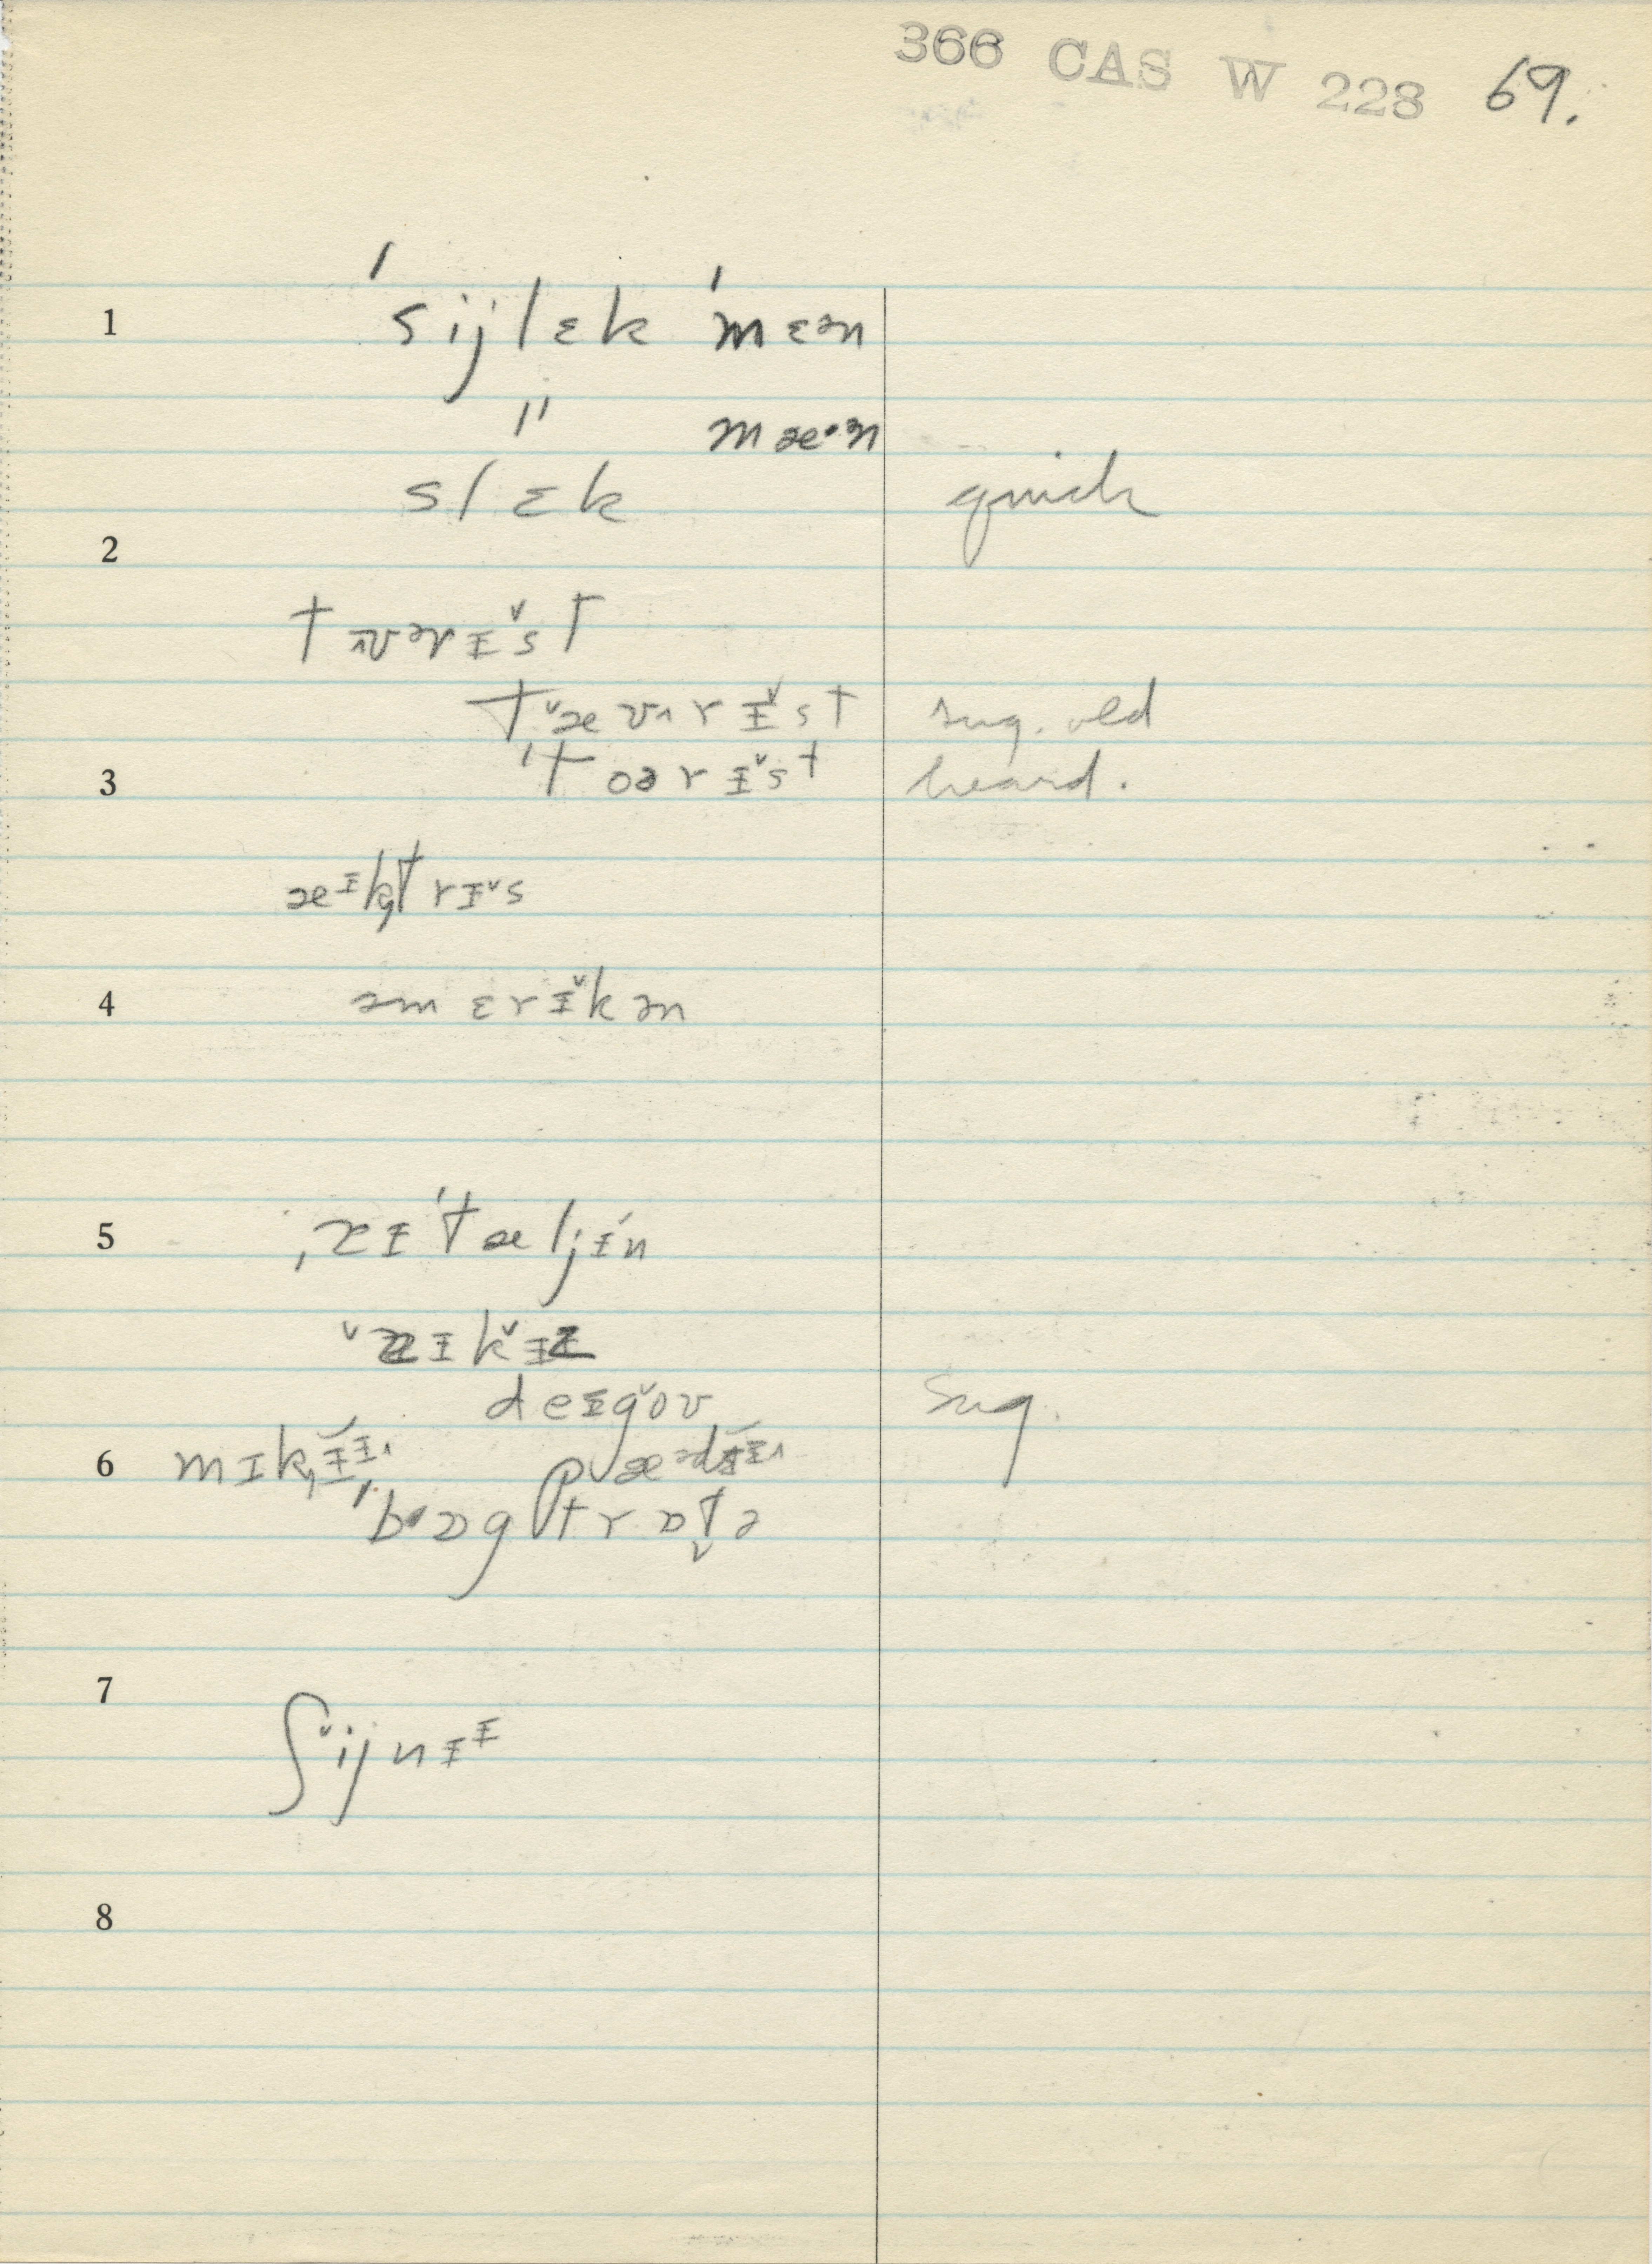 366 CAS W 228 69.
1 ˈsijlɛk ˈmɛən
" mæ·ən
slɛk quick
2
tʊərɪ̌st
tævərɪst sug. old
3 ˈtoərɪst heard.
æɪktrɪs
4 əmɛrɪkən
5 ˌɪˈtæljɪn
deɪgov sug.
6 mɪkɪɪ pædɪɪ
ˈbɒgtrɒtə
7
ʃijnɪɪ
8